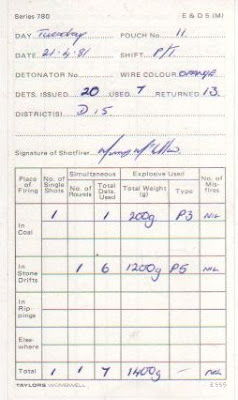 Series 780 E & D 5 (M)
DAY Tuesday POUCH No. 11
DATE 21-4-81 SHIFT P/T
DETONATOR No WIRE COLOUR orange
DETS. ISSUED 20 USED 7 RETURNED 13.
DISTRICT(S) D 15
Signature of Shotfirer
Place of Firing No. of Single Shots Simultaneous Explosive Used No. of Mis-fires
No. of Rounds Total Dets. Used Total Weight (g) Type
In Coal 1 1 200g P3 NIL
In Stone Drifts 1 6 1200g P5 NIL
In Rip-pings
Else-where
Total 1 1 7 1400g — NIL
TAYLORS WOMBWELL E555